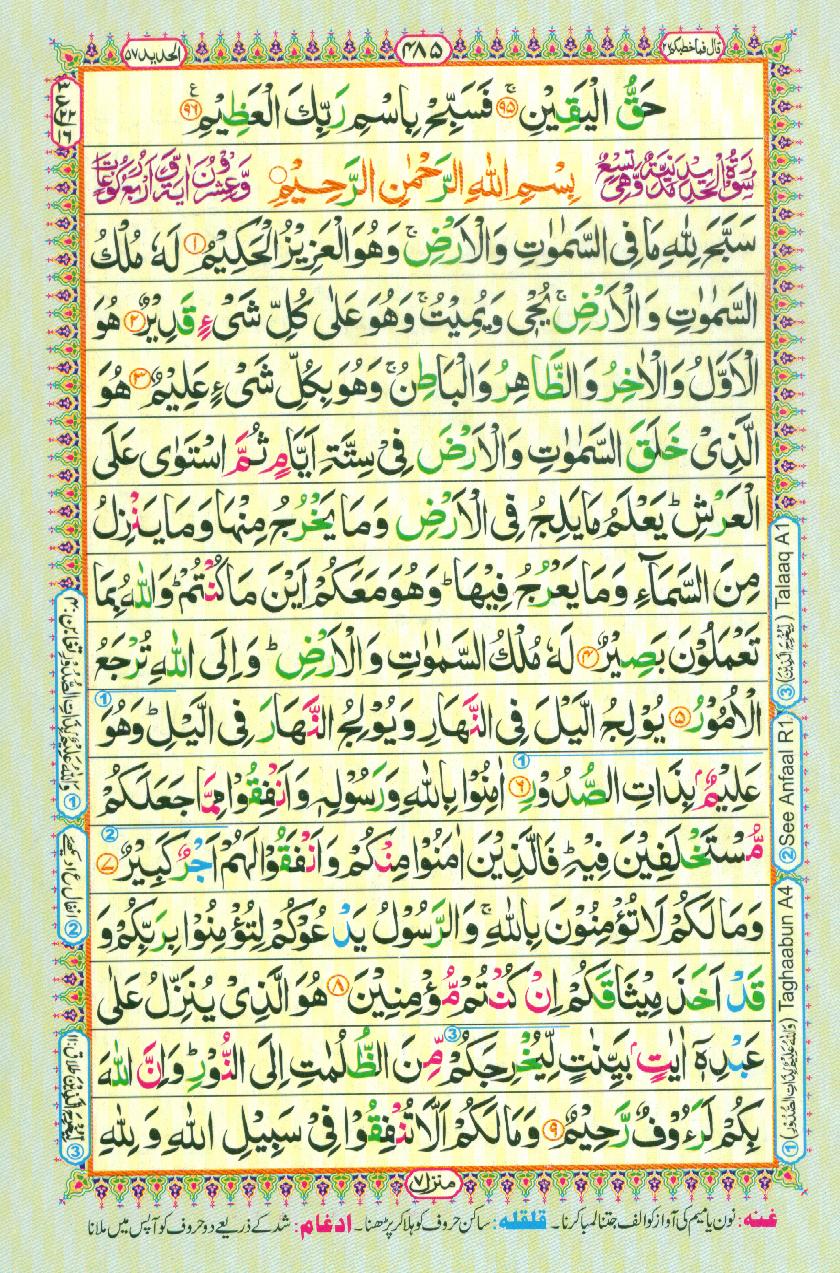 قال فما خطبكم ۲۷
۴۸۵
الحديد ۵۷
حَقُّ الْيَقِيْنِ ۚ ۹۵ فَسَبِّحْ بِاسْمِ رَبِّكَ الْعَظِيْمِ ۹۶
سُوْرَةُ الْحَدِيْدِ مَدَنِيَّةٌ وَّهِىَ تِسْعٌ بِسْمِ اللّٰهِ الرَّحْمٰنِ الرَّحِيْمِ وَّعِشْرُوْنَ اٰيَةً وَّاَرْبَعُ رُكُوْعَاتٍ
سَبَّحَ لِلّٰهِ مَا فِى السَّمٰوٰتِ وَالْاَرْضِ ۚ وَهُوَ الْعَزِيْزُ الْحَكِيْمُ ۱ لَهٗ مُلْكُ
السَّمٰوٰتِ وَالْاَرْضِ ۚ يُحْىٖ وَيُمِيْتُ ۚ وَهُوَ عَلٰى كُلِّ شَىْءٍ قَدِيْرٌ ۲ هُوَ
الْاَوَّلُ وَالْاٰخِرُ وَالظَّاهِرُ وَالْبَاطِنُ ۚ وَهُوَ بِكُلِّ شَىْءٍ عَلِيْمٌ ۳ هُوَ
الَّذِىْ خَلَقَ السَّمٰوٰتِ وَالْاَرْضَ فِىْ سِتَّةِ اَيَّامٍ ثُمَّ اسْتَوٰى عَلَى
الْعَرْشِ ؕ يَعْلَمُ مَا يَلِجُ فِى الْاَرْضِ وَمَا يَخْرُجُ مِنْهَا وَمَا يَنْزِلُ
مِنَ السَّمَآءِ وَمَا يَعْرُجُ فِيْهَا ؕ وَهُوَ مَعَكُمْ اَيْنَ مَا كُنْتُمْ ؕ وَاللّٰهُ بِمَا
تَعْمَلُوْنَ بَصِيْرٌ ۴ لَهٗ مُلْكُ السَّمٰوٰتِ وَالْاَرْضِ ؕ وَاِلَى اللّٰهِ تُرْجَعُ
الْاُمُوْرُ ۵ يُوْلِجُ الَّيْلَ فِى النَّهَارِ وَيُوْلِجُ النَّهَارَ فِى الَّيْلِ ؕ وَهُوَ
عَلِيْمٌۢ بِذَاتِ الصُّدُوْرِ ۶ اٰمِنُوْا بِاللّٰهِ وَرَسُوْلِهٖ وَاَنْفِقُوْا مِمَّا جَعَلَكُمْ
مُّسْتَخْلَفِيْنَ فِيْهِ ؕ فَالَّذِيْنَ اٰمَنُوْا مِنْكُمْ وَاَنْفَقُوْا لَهُمْ اَجْرٌ كَبِيْرٌ ۷
وَمَا لَكُمْ لَا تُؤْمِنُوْنَ بِاللّٰهِ ۚ وَالرَّسُوْلُ يَدْعُوْكُمْ لِتُؤْمِنُوْا بِرَبِّكُمْ وَ
قَدْ اَخَذَ مِيْثَاقَكُمْ اِنْ كُنْتُمْ مُّؤْمِنِيْنَ ۸ هُوَ الَّذِىْ يُنَزِّلُ عَلٰى
عَبْدِهٖٓ اٰيٰتٍۭ بَيِّنٰتٍ لِّيُخْرِجَكُمْ مِّنَ الظُّلُمٰتِ اِلَى النُّوْرِ ؕ وَاِنَّ اللّٰهَ
بِكُمْ لَرَءُوْفٌ رَّحِيْمٌ ۹ وَمَا لَكُمْ اَلَّا تُنْفِقُوْا فِىْ سَبِيْلِ اللّٰهِ وَلِلّٰهِ
منزل ۷
غنه: نون یا میم کی آواز کو الف جتنا لمبا کرنا۔ قلقله: ساکن حروف کو ہلا کر پڑھنا۔ ادغام: شد کے ذریعے دو حروف کو آپس میں ملانا
① (وَاللّٰهُ عَلِيْمٌۢ بِذَاتِ الصُّدُوْرِ) Taghaabun A4
② See Anfaal R1
③ Talaaq A1